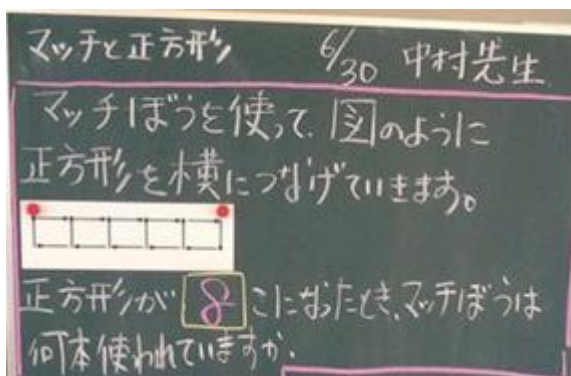 マッチと正方形 6/30 中村先生
マッチぼうを使って、図のように
正方形を横につなげていきます。
正方形が 8 こになったとき、マッチぼうは
何本使われていますか。